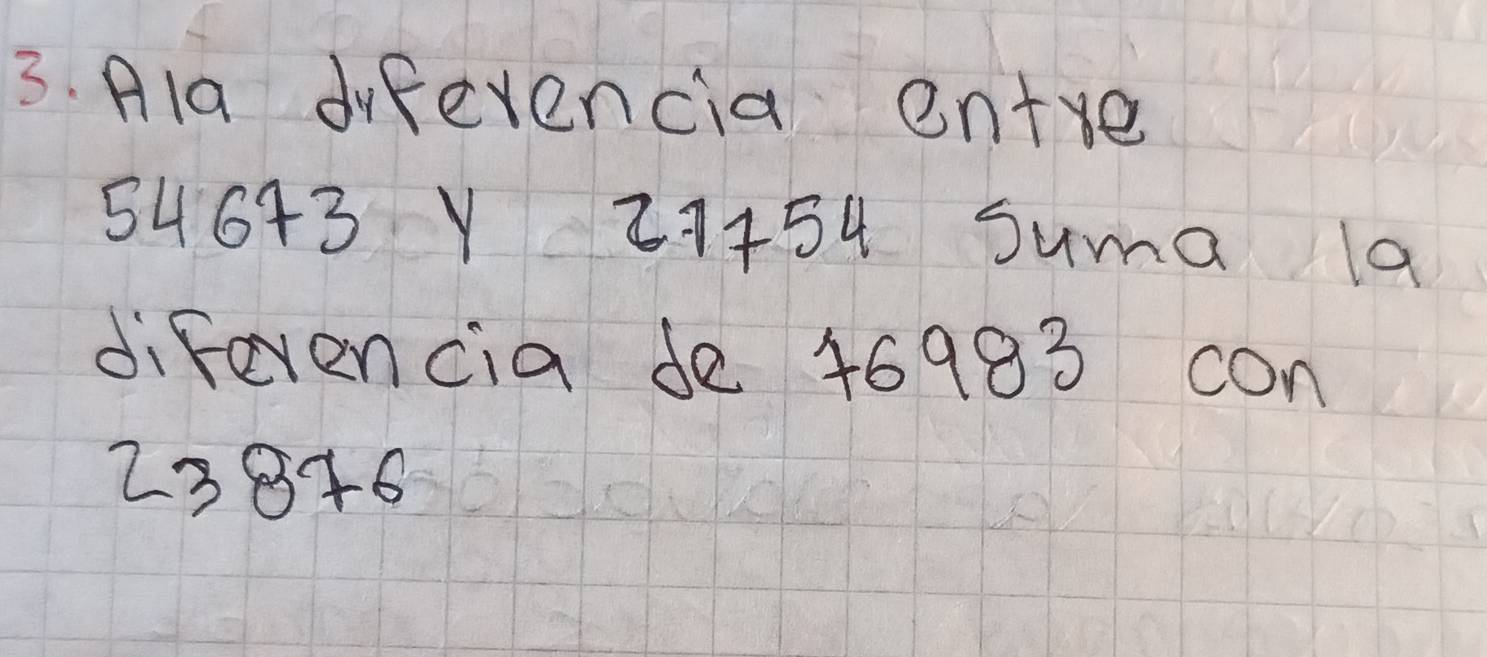 3. A la diferencia entre
54673 y 27754 suma la
diferencia de 76983 con
23876